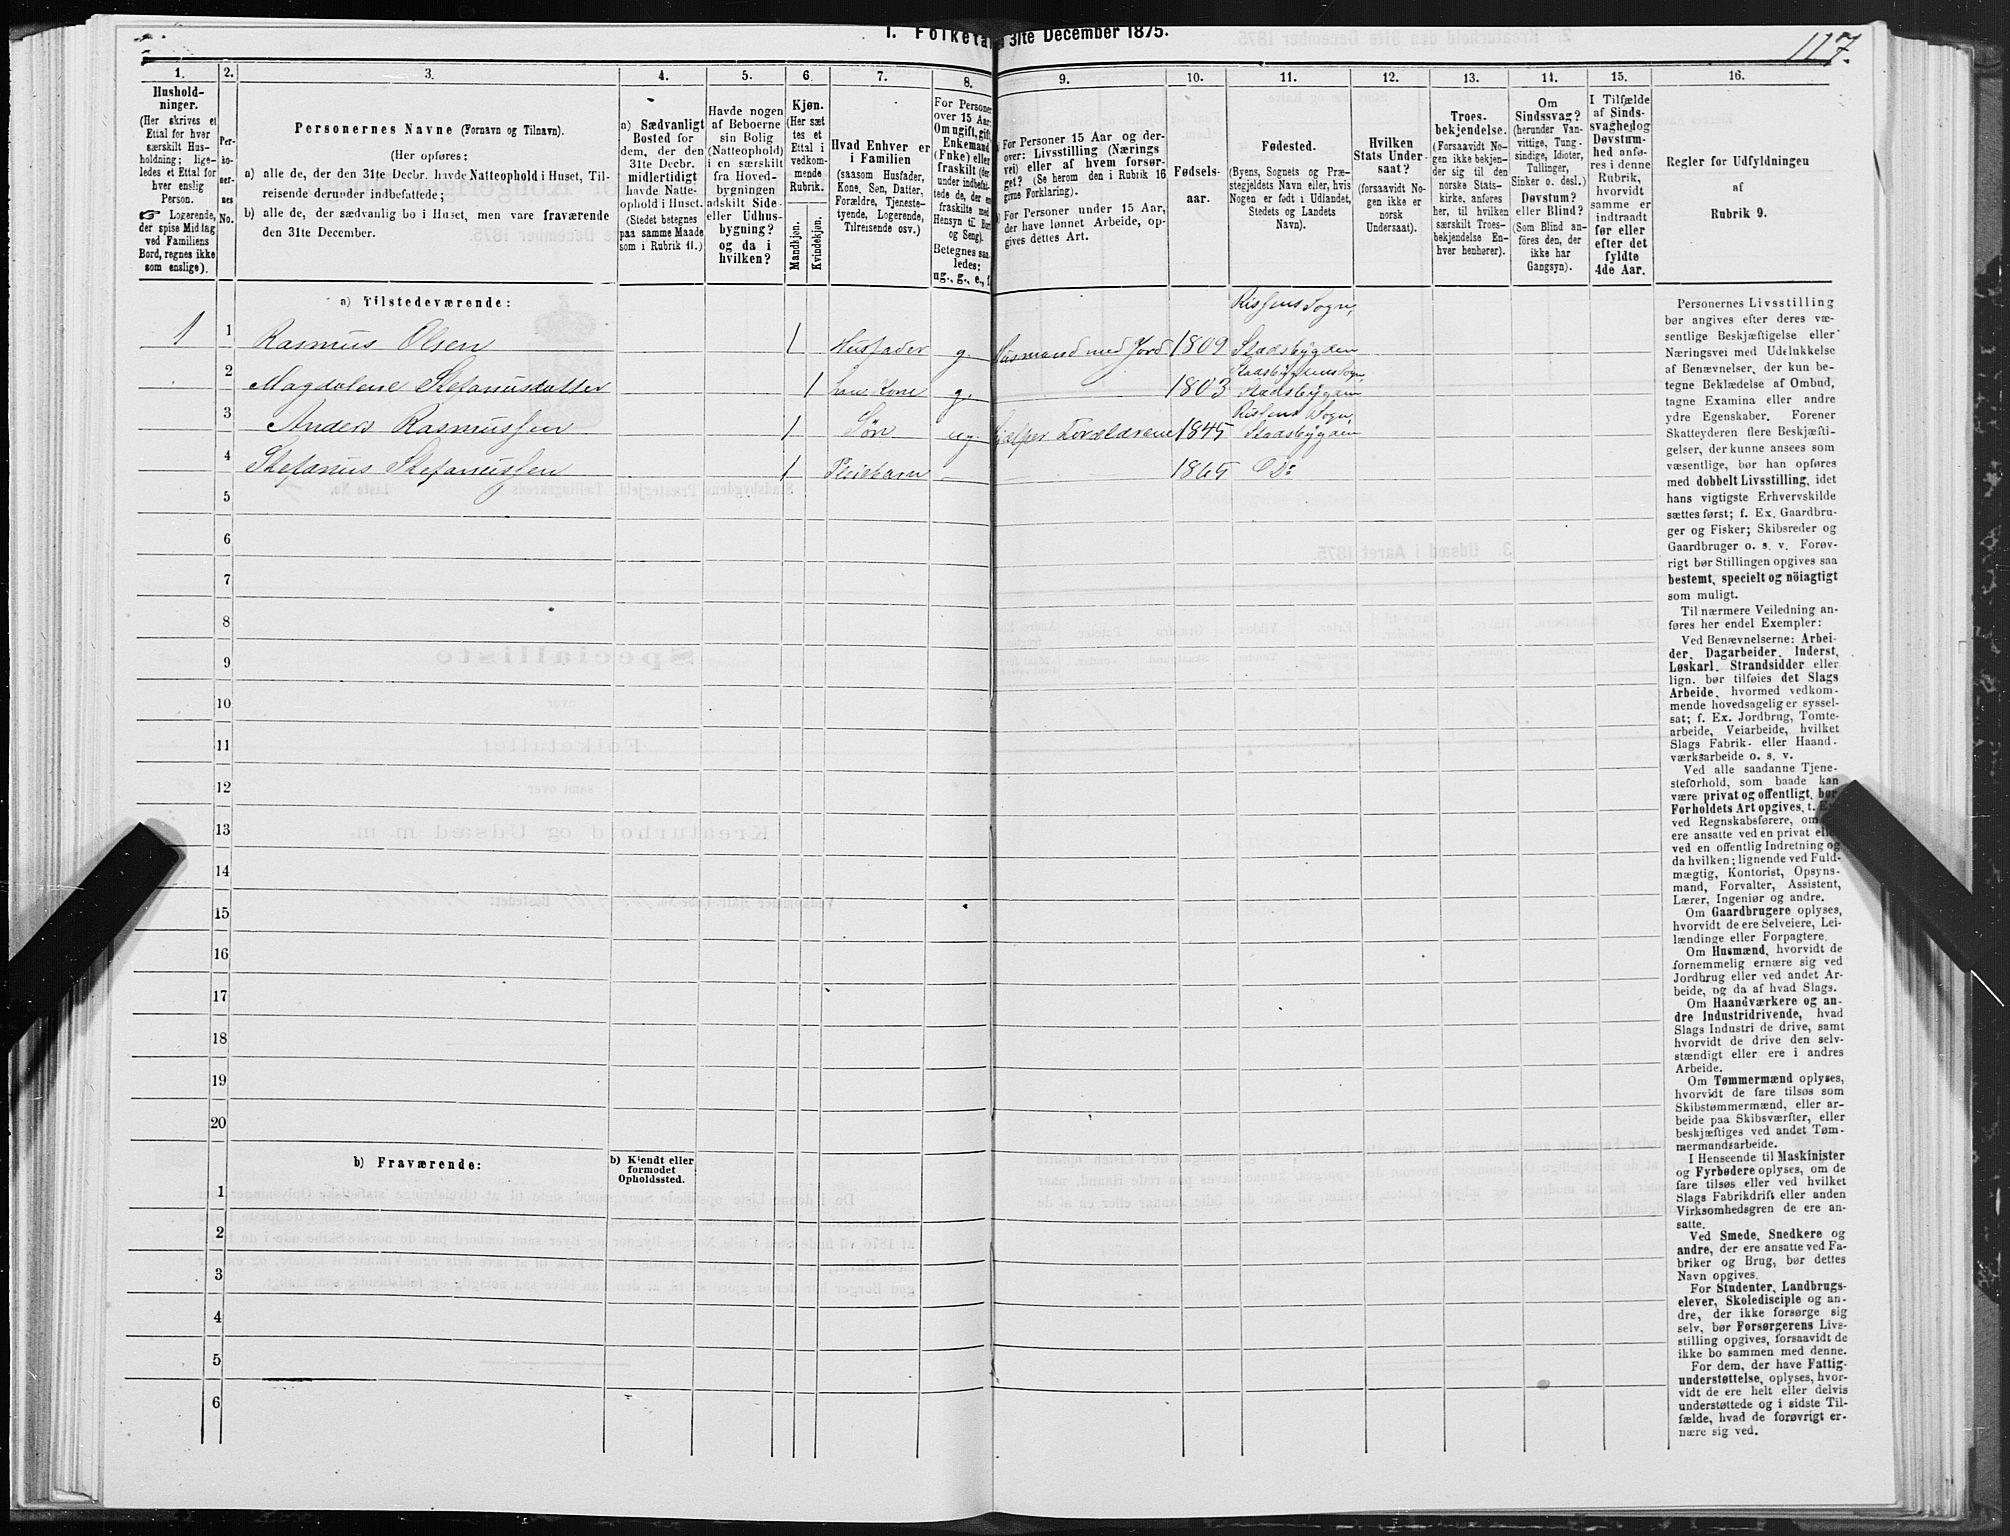 117.
1. Folketal 31te December 1875.
1.
Hushold-
ninger.
(Her skrives et
Ettal for hver
særskilt Hus-
holdning; lige-
ledes et Ettal for
hver enslig
Person.
☞ Logerende,
der spise Middag
ved Familiens
Bord, regnes ikke
som enslige).
2.
Per-
so-
ner-
nes
No.
3.
Personernes Navne (Fornavn og Tilnavn).
(Her opføres:
a) alle de, der den 31te Decbr. havde Natteophold i Huset, Til-
reisende derunder indbefattede;
b) alle de, der sædvanlig bo i Huset, men vare fraværende
den 31te December.
4.
a) Sædvanligt
Bosted for
dem, der den
31te Decbr.
midlertidigt
havde Natte-
ophold i Huset.
(Stedet betegnes
paa samme Maade
som i Rubrik 11.)
5.
Havde nogen
af Beboerne
sin Bolig
(Natteophold)
i en særskilt
fra Hoved-
bygningen
adskilt Side-
eller Udhus-
bygning?
og da i
hvilken?
6.
Kjøn.
(Her sæt
tes et
Ettal i
vedkom-
mende
Rubrik.
Mandkjøn.
Kvindekjøn.
7.
Hvad Enhver er
i Familien
(saasom Husfader,
Kone, Søn, Datter,
Forældre, Tjeneste-
tyende, Logerende,
Tilreisende osv.)
8.
For Personer
over 15 Aar:
Om ugift, gift,
Enkemand
(Enke) eller
fraskilt (der-
under indbefat-
tede de, der ere
fraskilte med
Hensyn til Bord
og Seng).
Betegnes saa-
ledes:
ug., g., e., f.
9.
a) For Personer 15 Aar og der-
over: Livsstilling (Nærings
vei) eller af hvem forsør-
get? (Se herom den i Rubrik 16
givne Forklaring).
b) For Personer under 15 Aar,
der have lønnet Arbeide, op-
gives dettes Art.
10.
Fødsels-
aar.
11.
Fødested.
(Byens, Sognets og Præ-
stegjeldets Navn eller, hvis
Nogen er født i Udlandet,
Stedets og Landets
Navn).
12.
Hvilken
Stats Under-
saat?
(forsaavidt No-
gen ikke er
norsk
Undersaat).
13.
Troes-
bekjendelse.
(Forsaavidt No-
gen ikke bekjen-
der sig til den
norske Stats-
kirke, anføres
her, til hvilken
særskilt Troes-
bekjendelse En-
hver henhører).
14.
Om
Sindssvag?
(herunder Van-
vittige, Tung-
sindige, Idioter,
Tullinger,
Sinker o. desl.)
Døvstum?
eller Blind?
(Som Blind an-
føres den, der
ikke har
Gangsyn).
15.
I Tilfælde
af Sinds-
svaghed og
Døvstum-
hed anfø-
res i denne
Rubrik,
hvorvidt
samme er
indtraadt
før eller
efter det
fyldte
4de Aar.
16.
Regler for Udfyldningen
af
Rubrik 9.
a) Tilstedeværende:
Rissens Sogn,
1 1 Rasmus Olsen 1 Husfader g. Husmand med Jord 1809 Stadsbygden
Stadsbygdens Sogn,
2 Magdalene Stefanusdatter 1 hans Kone g. 1803 Stadsbygden
Rissens Sogn,
3 Anders Rasmussen 1 Søn ug. Hjælper Forældrene 1845 Stadsbygden
4 Stefanus Stefanussen 1 Pleiebarn 1865 Do
5
6
7
8
9
10
11
12
13
14
15
16
17
18
19
20
b) Fraværende:
b) Kjendt eller
formodet
Opholdssted.
1
2
3
4
5
6
Personernes Livsstilling
bør angives efter deres væ-
sentlige Beskjæftigelse eller
Næringsvei med Udelukkelse
af Benævnelser, der kun be-
tegne Beklædelse af Ombud,
tagne Examina eller andre
ydre Egenskaber. Forener
Skatteyderen flere Beskjæfti-
gelser, der kunne ansees som
væsentlige, bør han opføres
med dobbelt Livsstilling, idet
hans vigtigste Erhvervskilde
sættes først; f. Ex. Gaardbru-
ger og Fisker; Skibsreder og
Gaardbruger o. s. v. Forøv-
rigt bør Stillingen opgives saa
bestemt, specielt og nöiagtigt
som muligt.
Til nærmere Veiledning an-
føres her endel Exempler:
Ved Benævnelserne: Arbei-
der, Dagarbeider, Inderst,
Løskarl, Strandsidder eller
lign. bør tilføies det Slags
Arbeide, hvormed vedkom-
mende hovedsagelig er syssel-
sat; f. Ex. Jordbrug, Tomte-
arbeide, Veiarbeide, hvilket
Slags Fabrik- eller Haand-
værksarbeide o. s. v.
Ved alle saadanne Tjene-
steforhold, som baade kan
være privat og offentligt, bør
Forholdets Art opgives, t. Ex.
ved Regnskabsførere, om de
ere ansatte ved en privat eller
ved en offentlig Indretning og
da hvilken; lignende ved Fuld-
mægtig, Kontorist, Opsyns-
mand, Forvalter, Assistent,
Lærer, Ingeniør og andre.
Om Gaardbrugere oplyses,
hvorvidt de ere Selveiere, Lei-
lændinge eller Forpagtere.
Om Husmænd, hvorvidt de
fornemmelig ernære sig ved
Jordbrug eller ved andet Ar-
beide, og da af hvad Slags.
Om Haandværkere og an-
dre Industridrivende, hvad
Slags Industri de drive, samt
hvorvidt de drive den selv-
stændigt eller ere i andres
Arbeide.
Om Tømmermænd oplyses,
hvorvidt de fare tilsøs som
Skibstømmermænd, eller ar-
beide paa Skibsværfter, eller
beskjæftiges ved andet Tøm-
mermandsarbeide.
I Henseende til Maskinister
og Fyrbødere oplyses, om de
fare tilsøs eller ved hvilket
Slags Fabrikdrift eller anden
Virksomhedsgren de ere an-
satte.
Ved Smede, Snedkere og
andre, der ere ansatte ved Fa-
briker og Brug, bør dettes
Navn opgives.
For Studenter, Landbrugs-
elever, Skoledisciple og an-
dre, der ikke forsørge sig
selv, bør Forsørgerens Livs-
stilling opgives, forsaavidt de
ikke bo sammen med denne.
For dem, der have Fattig-
understøttelse, oplyses, hvor-
vidt de ere helt eller delvis
understøttede og i sidste Til-
fælde, hvad de forøvrigt er-
nære sig ved.